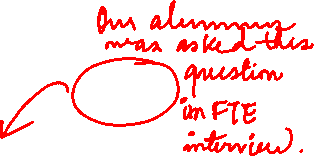 Our alumnus
was asked this
question
in FTE
interview.